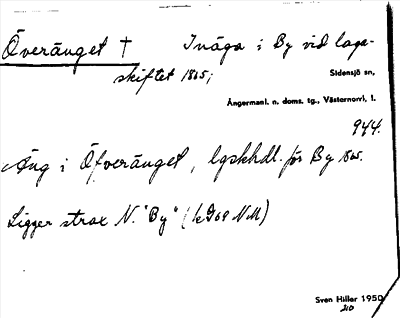 Överänget † Inäga i By vid laga-
skiftet 1865;
Sidensjö sn,
Ångermanl. n. doms. tg., Västernorrl. l.
944.
Äng i Öfveränget, lgskhdl. för By 1865.
Ligger strax N. "By" (k969 NM)
Sven Hiller 1950